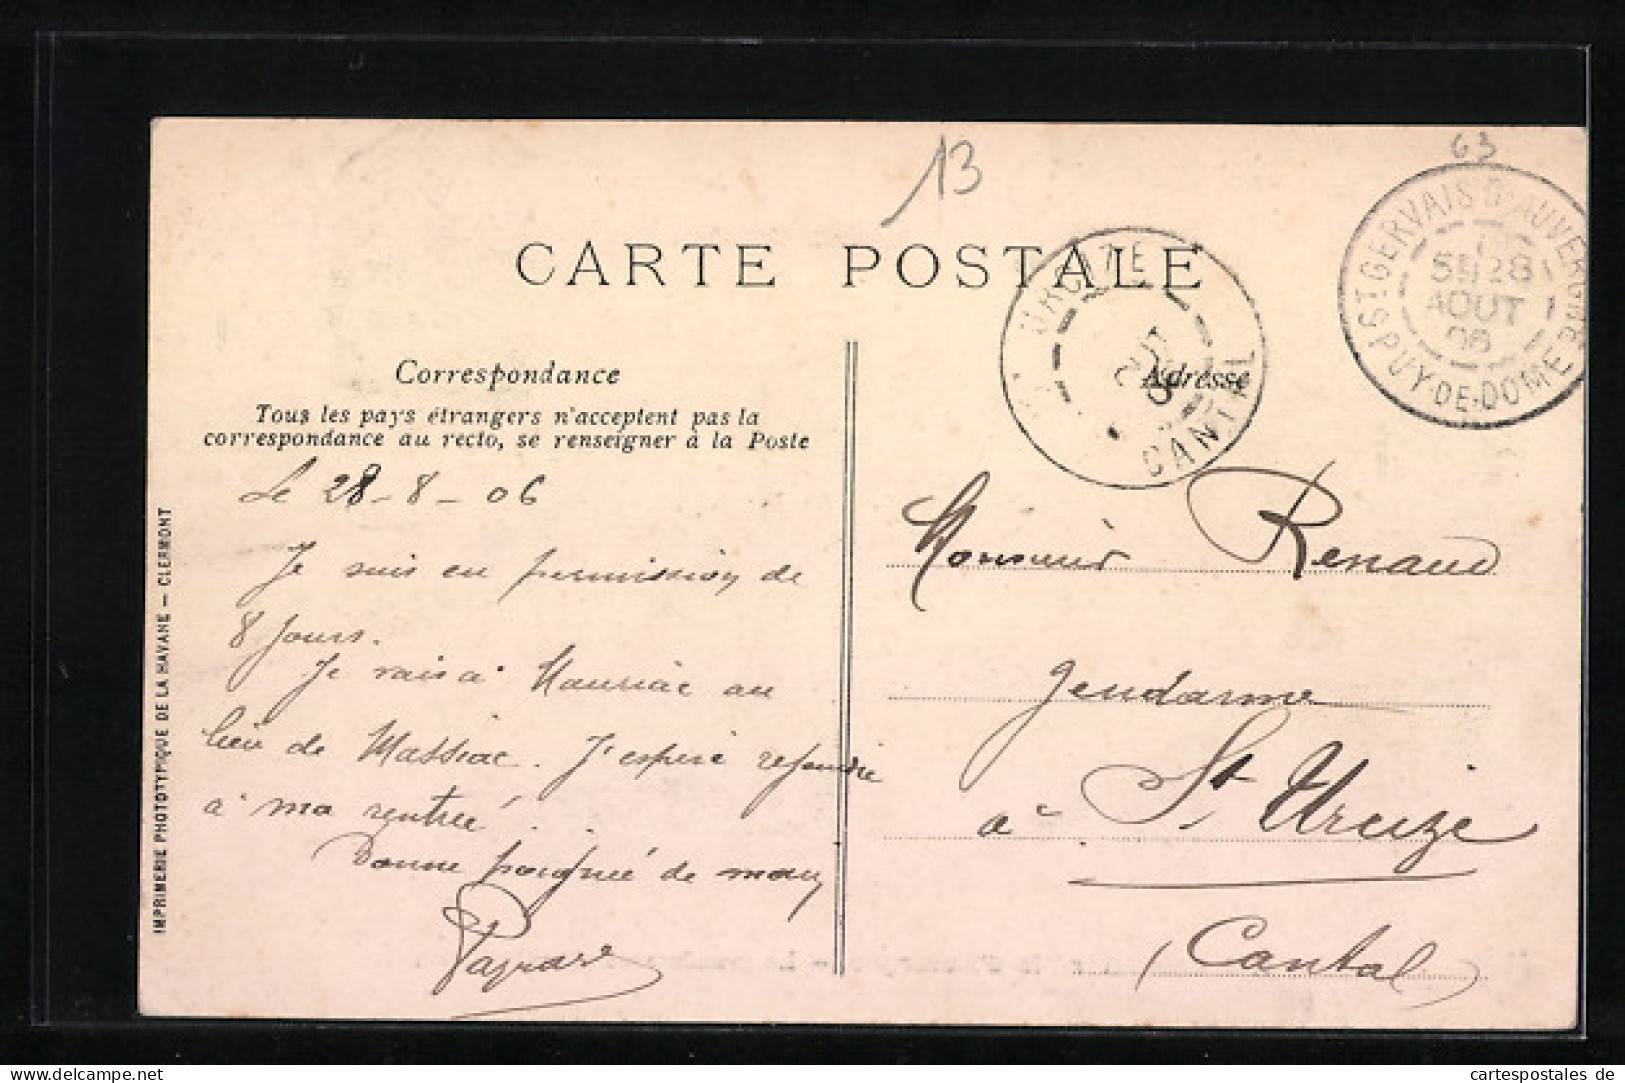 13
63
CARTE POSTALE
ST GERVAIS D'AUVERGNE
5E 28
AOUT
06
PUY-DE-DOME
URCIZE
CANTAL
Correspondance
Adresse
Tous les pays étrangers n'acceptent pas la
correspondance au recto, se renseigner à la Poste
Le 28-8-06
Je suis en permission de
8 jours.
Je vais à Mauriac au
lieu de Massiac. J'espère rejoindre
à ma rentrée.
Bonne poignée de main
Monsieur Renaud
Gendarme
à St Urcize
(Cantal)
IMPRIMERIE PHOTOTYPIQUE DE LA HAVANE — CLERMONT
cartespostales de